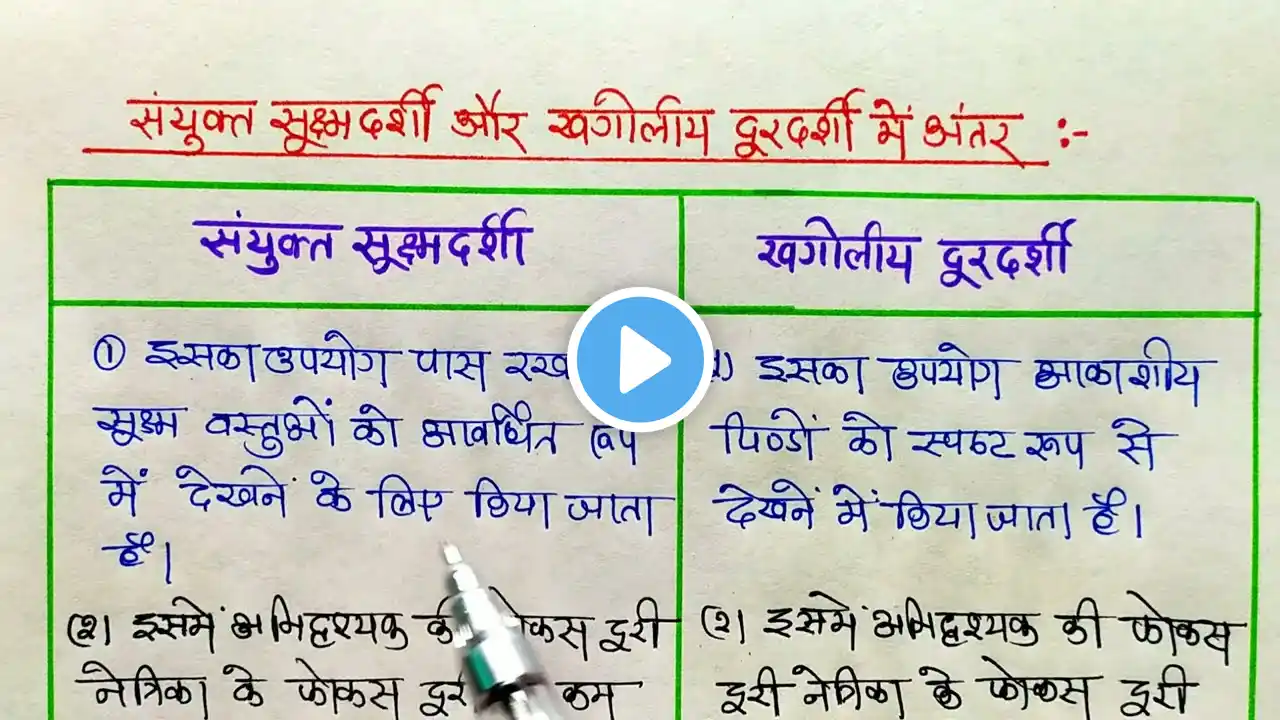 संयुक्त सूक्ष्मदर्शी और खगोलीय दूरदर्शी में अंतर :-
संयुक्त सूक्ष्मदर्शी
खगोलीय दूरदर्शी
① इसका उपयोग पास
सूक्ष्म वस्तुओं को आवर्धित रूप
में देखनें के लिए किया जाता
है।
(२) इसमें अभिदृश्यक की फोकस दूरी
नेत्रिका के फोकस कम
इसका उपयोग आकाशीय
पिण्डों को स्पष्ट रूप से
देखनें में किया जाता है।
(२) इसमें अभिदृश्यक की फोकस
दूरी नेत्रिका के फोकस दूरी